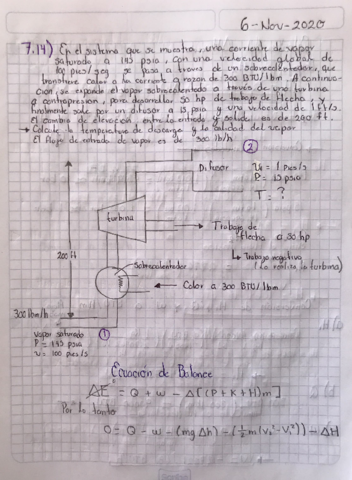 6-Nov-2020
7.14) En el sistema que se muestra, una corriente de vapor
saturado a 145 psia, con una velocidad global de
100 pies/seg se pasa a través de un sobrecalentador, que
transfiere calor a la corriente a razon de 300 BTU/lbm. A continua-
ción, se expande el vapor sobrecalentado a través de una turbina
a contrapresion, para desarrollar 50 hp de trabajo de flecha, y
finalmente sale por un difusor a 15 psia y una velocidad de 1 ft/s.
El cambio de elevación, entre la entrada y salida es de 200 ft.
→ Calcule la temperatura de descarga y la calidad del vapor
El flujo de entrada de vapor es de 300 lb/h
2
Difusor
V₂ = 1 pies/s
P = 15 psia
T = ?
turbina
→ Trabajo de
flecha a 50 hp
↳ Trabajo negativo
(Lo realiza la turbina)
200 ft
Sobrecalentador
Calor a 300 BTU/lbm
300 lbm/h
1
Vapor saturado
P = 145 psia
v = 100 pies/s
Ecuacion de Balance
ΔE = Q + w - Δ[(P+K+H)m]
Por lo tanto
0 = Q - w - (mgΔh) - (½m(V₂² - V₁²)) - ΔH